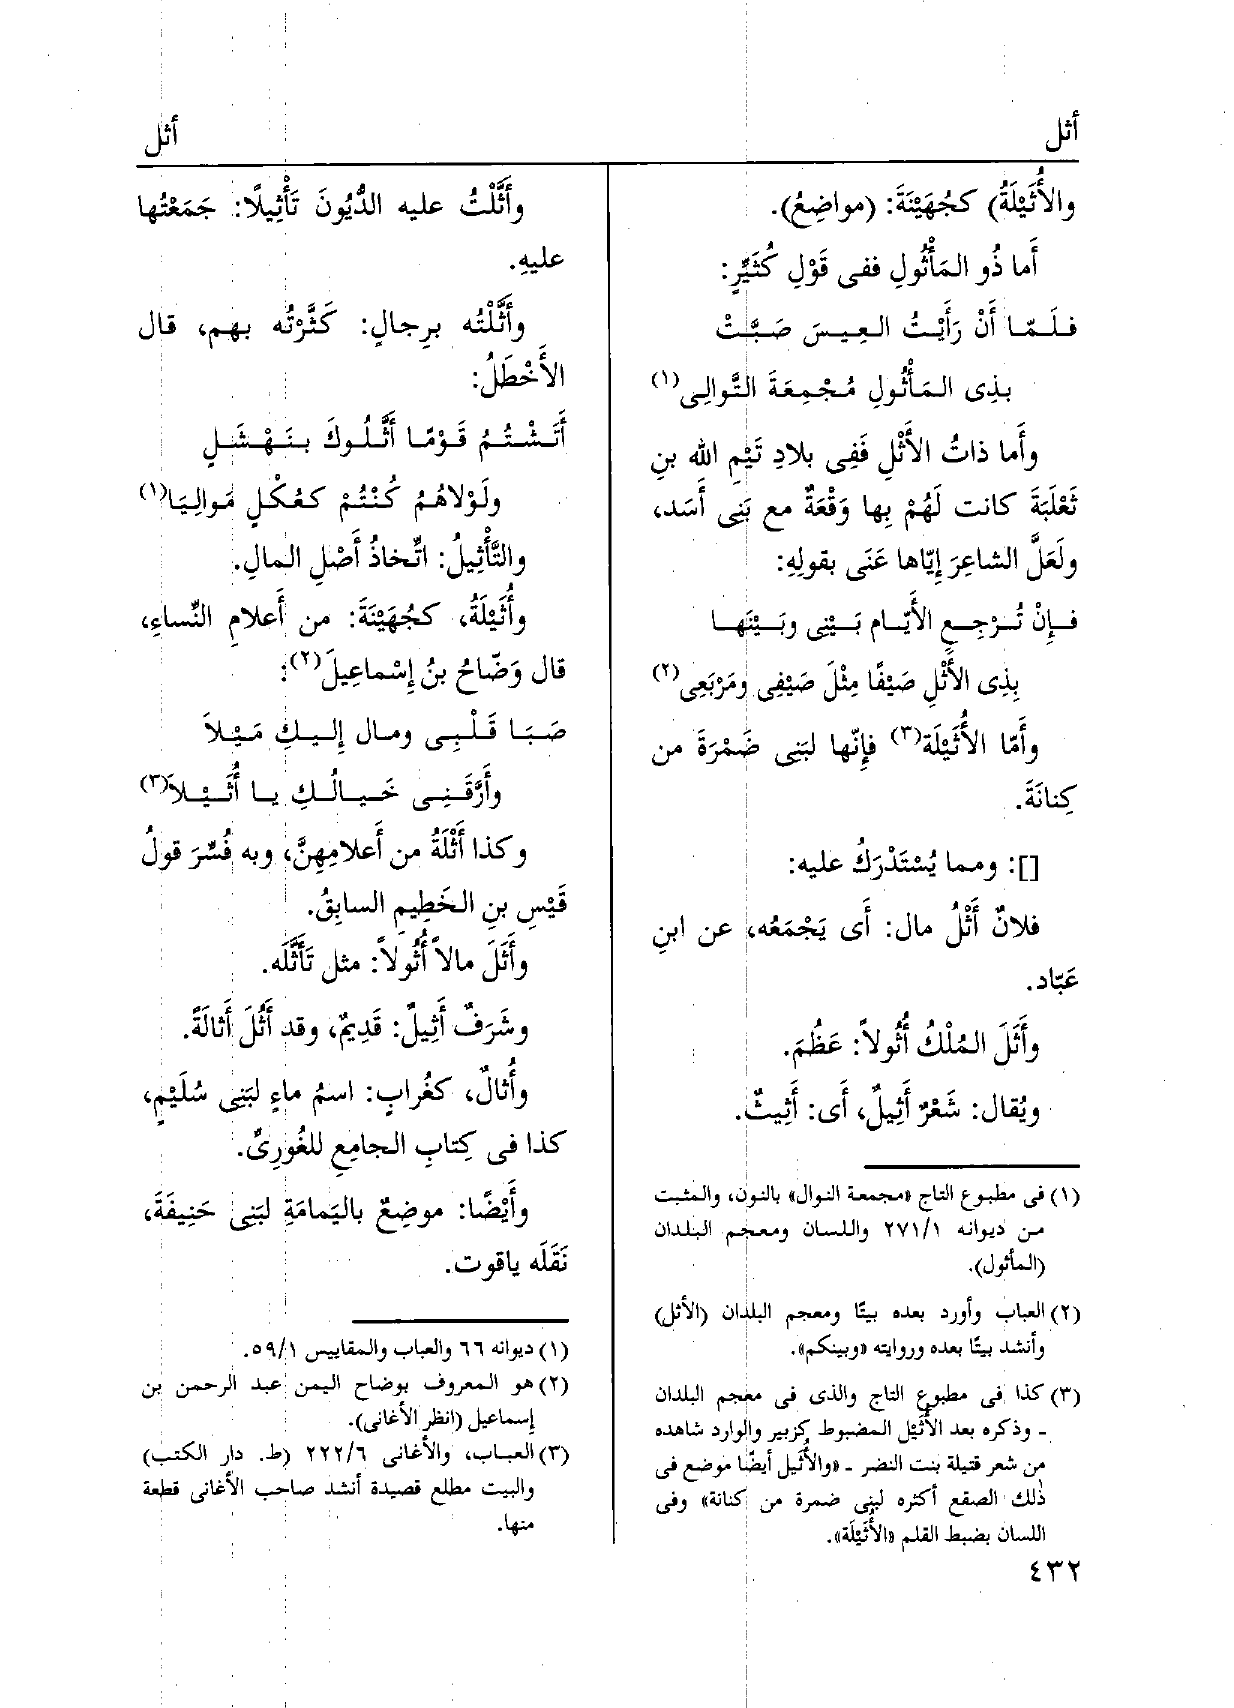 أثل
أثل
والأُثَيْلَةُ) كجُهَيْنَةَ: (مواضِعُ).
أما ذُو المَأْثُولِ ففى قَوْلِ كُثَيِّرٍ:
فلَمّا أَنْ رَأَيْتُ العِيسَ صَبَّتْ
بذِى المَأْثُولِ مُجْمِعَةَ التَّوالِى(١)
وأَما ذاتُ الأَثْلِ فَفِى بلادِ تَيْمِ الله بنِ
ثَعْلَبَةَ كانت لَهُمْ بِها وَقْعَةٌ مع بَنِى أَسَد،
ولَعَلَّ الشاعِرَ إِيّاها عَنَى بقولِهِ:
فإِنْ تُرْجِعِ الأَيّام بَيْنِى وبَيْنَها
بِذِى الأَثْلِ صَيْفًا مِثْلَ صَيْفِى ومَرْبَعِى(٢)
وأَمّا الأُثَيْلَة(٣) فإِنّها لبَنِى ضَمْرَةَ من
كِنانَةَ.
[]: ومما يُسْتَدْرَكُ عليه:
فلانٌ أَثْلُ مال: أَى يَجْمَعُه، عن ابنِ
عَبّاد.
وأَثَلَ المُلْكُ أُثُولاً: عَظُمَ.
ويُقال: شَعْرٌ أَثِيلٌ، أَى: أَثِيثٌ.
(١) فى مطبوع التاج «مجمعة النوال» بالنون، والمثبت
من ديوانه ٢٧١/١ واللسان ومعجم البلدان
(المأثول).
(٢) العباب وأورد بعده بيتًا ومعجم البلدان (الأثل)
وأنشد بيتًا بعده وروايته «وبينكم».
(٣) كذا فى مطبوع التاج والذى فى معجم البلدان
ـ وذكره بعد الأُثَيْل المضبوط كزبير والوارد شاهده
من شعر قتيلة بنت النضر ـ «والأَثيل أيضًا موضع فى
ذلك الصقع أكثره لبنى ضمرة من كنانة» وفى
اللسان بضبط القلم «الأُثَيْلَة».
٤٣٢
وأَثَّلْتُ عليه الدُّيُونَ تَأْثِيلًا: جَمَعْتُها
عليهِ.
وأَثَّلْتُه برِجالٍ: كَثَّرْتُه بهم، قال
الأَخْطَلُ:
أَتَشْتُمُ قَوْمًا أَثَّلُوكَ بنَهْشَلٍ
ولَوْلاهُمُ كُنْتُمْ كعُكْلٍ مَوالِيَا(١)
والتَّأْثِيلُ: اتِّخاذُ أَصْلِ المالِ.
وأُثَيْلَةُ، كجُهَيْنَةَ: من أَعلامِ النِّساءِ،
قال وَضّاحُ بنُ إِسْماعِيلَ(٢):
صَبَا قَلْبِى ومال إِليكِ مَيْلاَ
وأَرَّقَنِى خَيالُكِ يا أُثَيْلاَ(٣)
وكذا أَثْلَةُ من أَعلامِهِنَّ، وبه فُسِّرَ قولُ
قَيْسِ بنِ الخَطِيمِ السابِقُ.
وأَثَلَ مالاً أُثُولاً: مثل تَأَثَّلَه.
وشَرَفٌ أَثِيلٌ: قَدِيمٌ، وقد أَثُلَ أَثالَةً.
وأُثالٌ، كغُرابٍ: اسمُ ماءٍ لبَنِى سُلَيْمٍ،
كذا فى كِتابِ الجامِعِ للغُورِىّ.
وأَيْضًا: موضِعٌ باليَمامَةِ لبَنِى حَنِيفَةَ،
نَقَلَه ياقوت.
(١) ديوانه ٦٦ والعباب والمقاييس ٥٩/١.
(٢) هو المعروف بوضاح اليمن عبد الرحمن بن
إسماعيل (انظر الأغانى).
(٣) العباب، والأغانى ٢٢٢/٦ (ط. دار الكتب)
والبيت مطلع قصيدة أنشد صاحب الأغانى قطعة
منها.